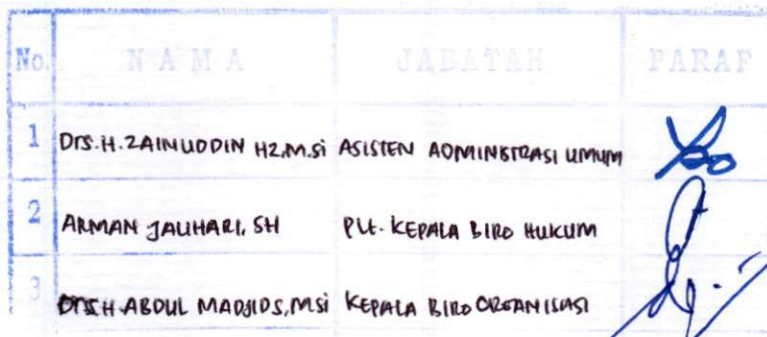 No. NAMA JABATAN PARAF
1 Drs. H. ZAINUDDIN HZ, M.Si ASISTEN ADMINISTRASI UMUM
2 ARMAN JAUHARI, SH Plt. KEPALA BIRO HUKUM
3 Drs. H. ABDUL MADJID S, MSi KEPALA BIRO ORGANISASI